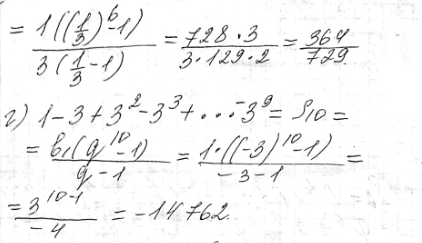 = 1((1/3)^6-1) / 3(1/3-1) = 728·3 / 3·729·2 = 364/729
г) 1-3+3^2-3^3+...-3^9 = S_10 =
= b_1(q^10-1) / q-1 = 1·((-3)^10-1) / -3-1 =
= 3^10-1 / -4 = -14762.